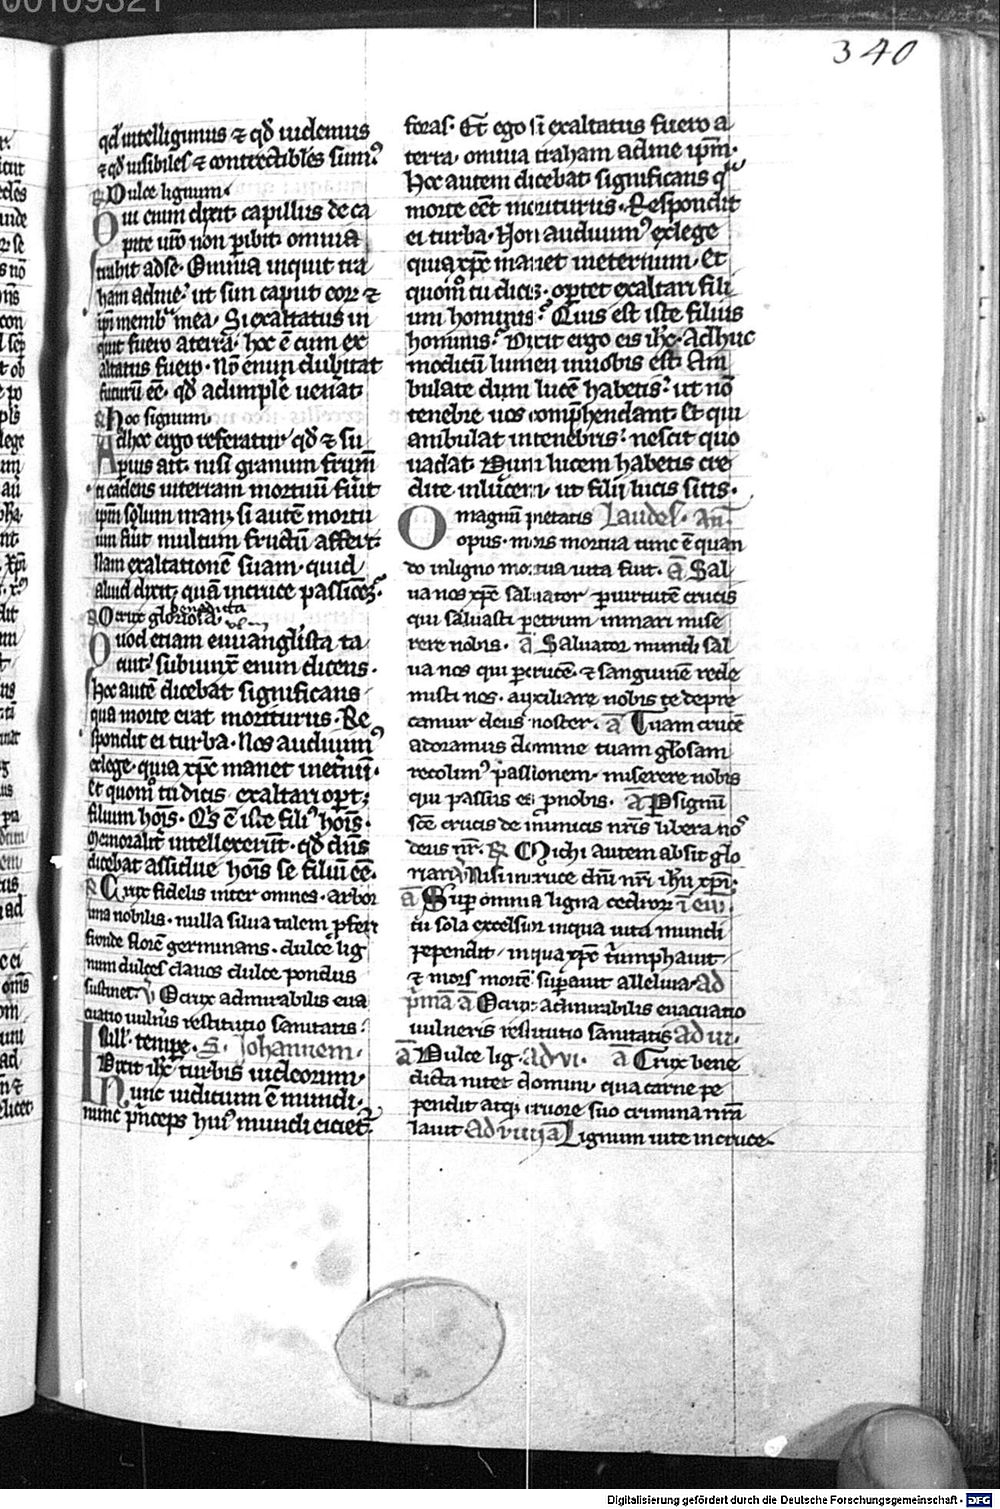 00109321
340
qd intelligimus ⁊ qd uidemus
⁊ qd uisibiles ⁊ contrectibiles sumꝰ
℟ Dulce lignum
Qui enim dixit capillus de ca
pite uro non peribit omnia
trahit ad se. Omnia inquit tra
ham ad me. ut sim caput eorum ⁊
ipi membra mea. Si exaltatus in
quit fuero a terra. hoc ē cum ex
altatus fuero. Nō enim dubitat
futurū eē. qd adimplē uenat
℟ Hoc signum
Ad hoc ergo referatur qd ⁊ su
pius ait. nisi granum frumti
cadens in terram mortuū fuit
ipm solum manꝫ si autē mortu
um fuit multum fructū affert.
Nam exaltationē suam. quid
aliud dixit quā in cruce passioēs.
℟ O crux gloriosa. O crux benedicta
Quod etiam euuanglista ta
cuit. subiunxt enim dicens.
hoc autē dicebat significans
qua morte erat moriturus. Re
spondit ei turba. Nos audiuimꝰ
ex lege. quia xpc manet in etnū.
Et quomō tu dicis exaltari oportꝫ
filium hoīs. Qis ē iste filiꝰ hoīs.
Memoralit intellexerūt. qd dns
dicebat assidue hois se filiū eē.
℟ Crux fidelis inter omnes. arbor
una nobilis. nulla silua talem pfert
fronde florē germinans. dulcē lig
num dulces clauos dulce pondus
sustinet. ℣ O crux admirabilis eua
cuatio uulnis restitutio sanitatis.
In ill. tempe. S. Johannem.
Dixit ihc turbis iudeorum.
Nunc iudicium ē mundi.
nunc pnceps huiꝰ mundi eiciet
foras. Et ego si exaltatus fuero a
terra. omnia traham ad me ipm.
Hoc autem dicebat significans q
morte eēt moriturus. Respondit
ei turba. Nos audiuimꝰ ex lege
quia xpc manet in eternum. Et
quomō tu dicis. oportet exaltari fili
um hominis? Quis est iste filius
hominis? Dixit ergo eis ihc. Adhuc
modicū lumen in uobis est. Am
bulate dum lucē habetis. ut nō
tenebre uos comphendant. Et qui
ambulat in tenebris. nescit quo
uadat. Dum lucem habetis cre
dite in lucem. ut filij lucis sitis.
O magnū pietatis Laudes. An.
opus. mors mortua tunc ē quan
do in ligno mortua uita fuit. ā Sal
ua nos xpc saluator per uirtutē crucis
qui saluasti petrum in mari mise
rere nobis. ā Saluator mundi sal
ua nos qui per crucē. ⁊ sanguinē rede
misti nos. auxiliare nobis te depre
camur deus noster. ā Tuam crucē
adoramus domine tuam glosam
recolimꝰ passionem. miserere nobis
qui passus es p nobis. ā P signū
scē crucis de inimicis nris libera nos
deus nr. ℟ Michi autem absit glo
riari Nisi in cruce dni nri ihu xpi.
ā Sup omnia ligna cedrorum
tu sola excelsior in qua uita mundi
pependit. in qua xpc triumphauit
⁊ mors mortē supauit alleluia. ad
pmā ā O crux admirabilis euacuatio
uulneris restitutio sanitatis ad iii.
ā Dulce lig. Ad vi. ā Crux bene
dicta nitet domini. qua carne pe
pendit atqꝫ cruore suo crimina nra
lauit Ad viiij ā Lignum uite in cruce.
Digitalisierung gefördert durch die Deutsche Forschungsgemeinschaft - DFG